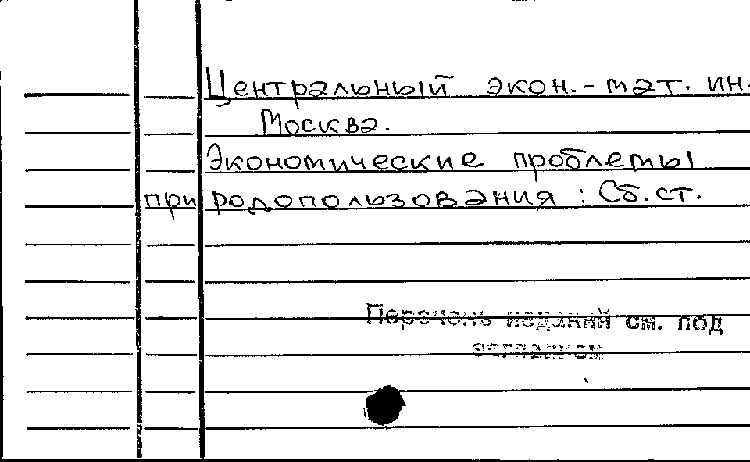 Центральный экон.-мат. ин.
Москва.
Экономические проблемы
природопользования : Сб.ст.
Перечень изданий см. под